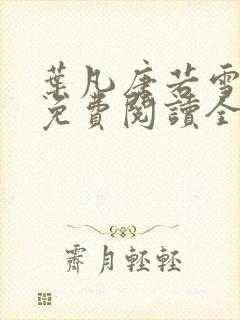 葉凡唐若雪
免費閱讀全
霽月輕輕